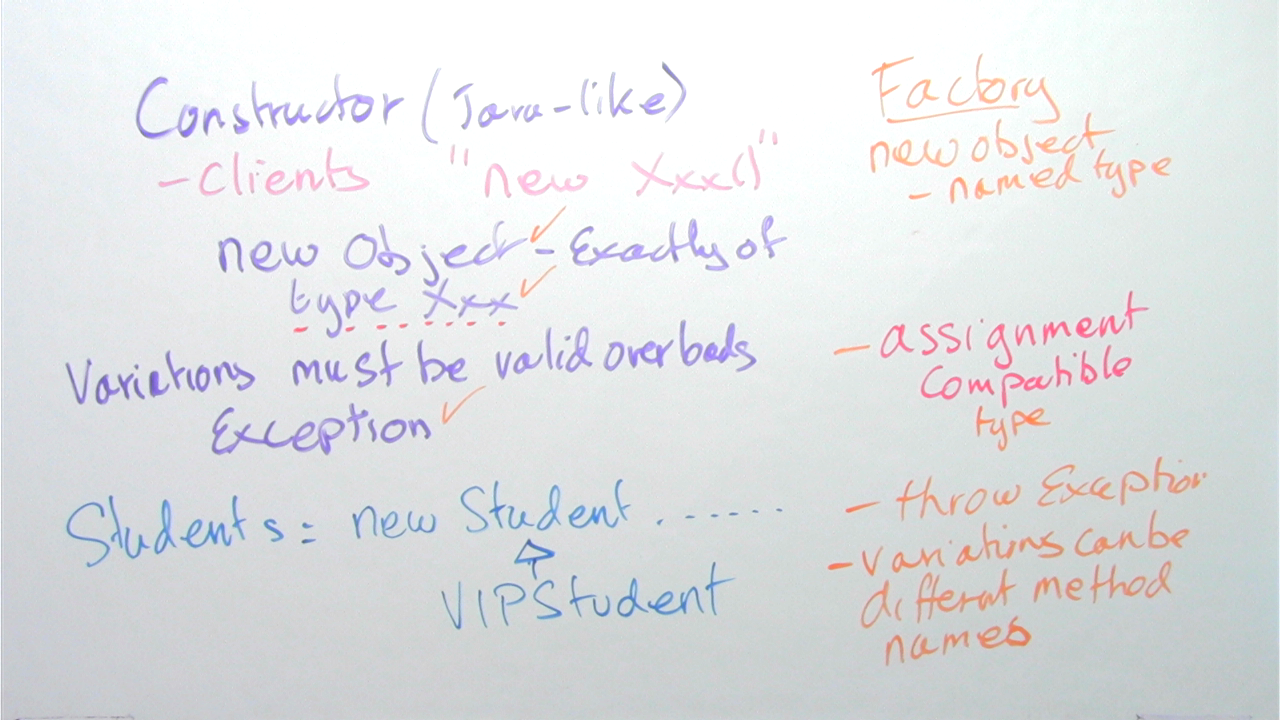 Constructor (Java-like)
- Clients "new Xxx()"
new Object - Exactly of
type Xxx
Variations must be valid overloads
Exception
Student s = new Student . - - - - - -
VIPStudent
Factory
new object
- named type
- assignment
Compatible
type
- throw Exception
- variations can be
different method
names